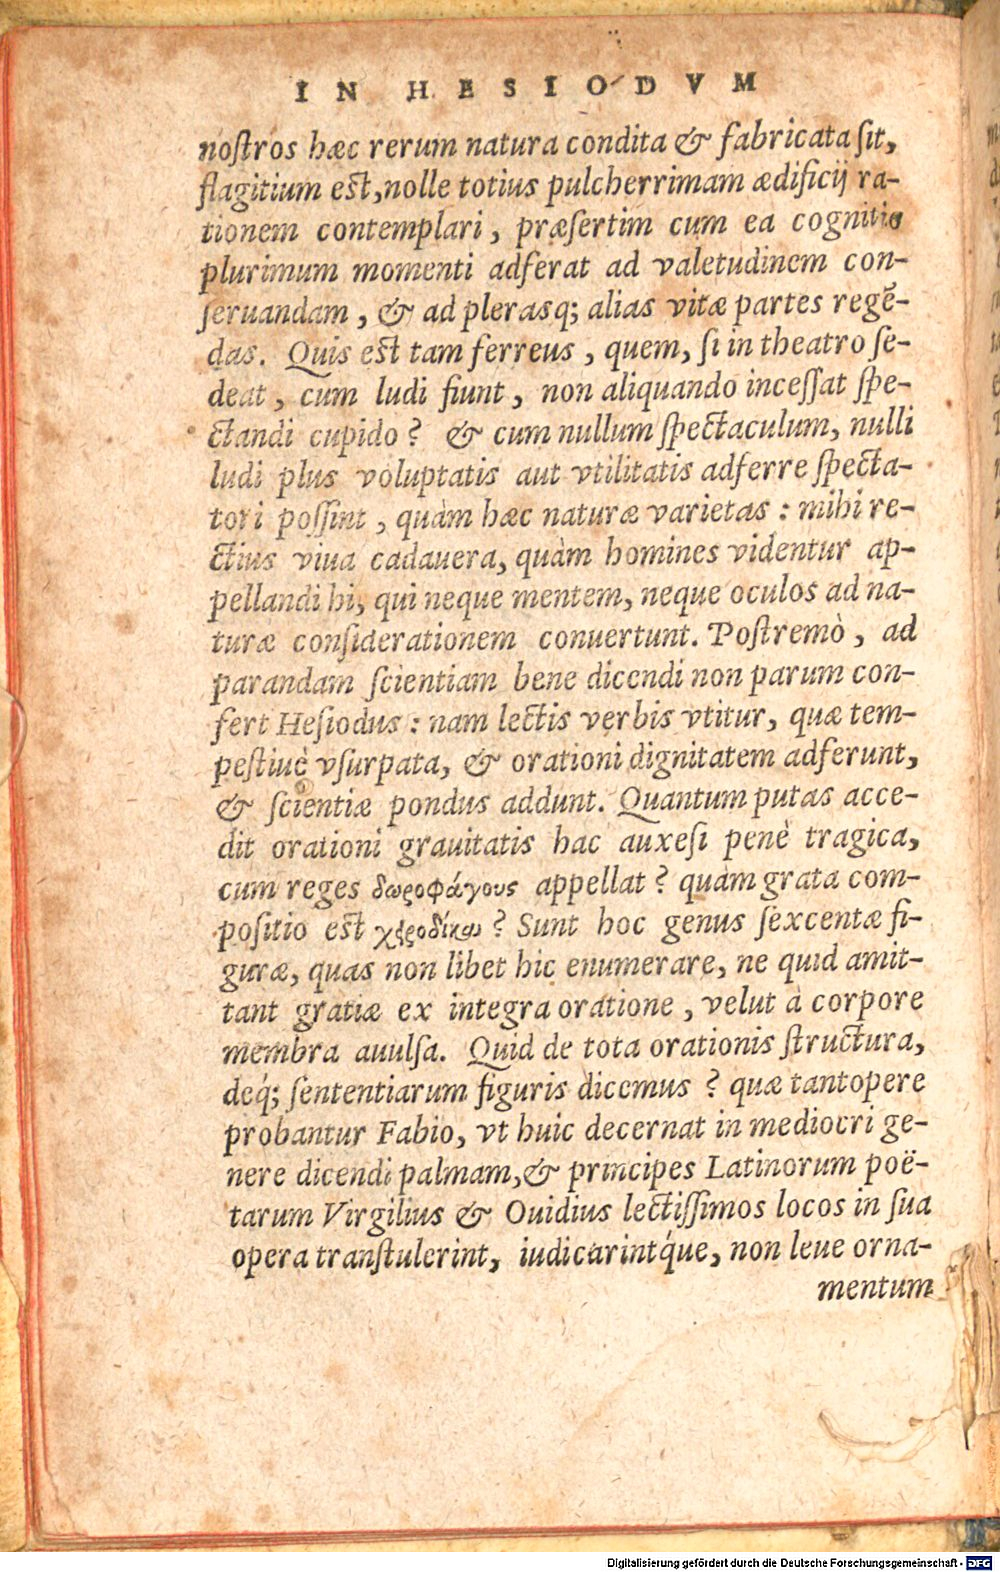 IN HESIODVM
nostros hæc rerum natura condita & fabricata sit,
flagitium est, nolle totius pulcherrimam ædificij ra-
tionem contemplari, præsertim cum ea cognitio
plurimum momenti adferat ad valetudinem con-
seruandam, & ad plerasq; alias vitæ partes regē-
das. Quis est tam ferreus, quem, si in theatro se-
deat, cum ludi fiunt, non aliquando incessat spe-
ctandi cupido? & cum nullum spectaculum, nulli
ludi plus voluptatis aut vtilitatis adferre specta-
tori possint, quàm hæc naturæ varietas: mihi re-
ctius viua cadauera, quàm homines videntur ap-
pellandi hi, qui neque mentem, neque oculos ad na-
turæ considerationem conuertunt. Postremò, ad
parandam scientiam bene dicendi non parum con-
fert Hesiodus: nam lectis verbis vtitur, quæ tem-
pestiuè vsurpata, & orationi dignitatem adferunt,
& scientiæ pondus addunt. Quantum putas acce-
dit orationi grauitatis hac auxesi penè tragica,
cum reges δωροφάγους appellat? quàm grata com-
positio est χειροδίκαι? Sunt hoc genus sexcentæ fi-
guræ, quas non libet hic enumerare, ne quid amit-
tant gratiæ ex integra oratione, velut à corpore
membra auulsa. Quid de tota orationis structura,
deq́; sententiarum figuris dicemus? quæ tantopere
probantur Fabio, vt huic decernat in mediocri ge-
nere dicendi palmam, & principes Latinorum poë-
tarum Virgilius & Ouidius lectissimos locos in sua
opera transtulerint, iudicarintq́ue, non leue orna-
mentum
Digitalisierung gefördert durch die Deutsche Forschungsgemeinschaft - DFG